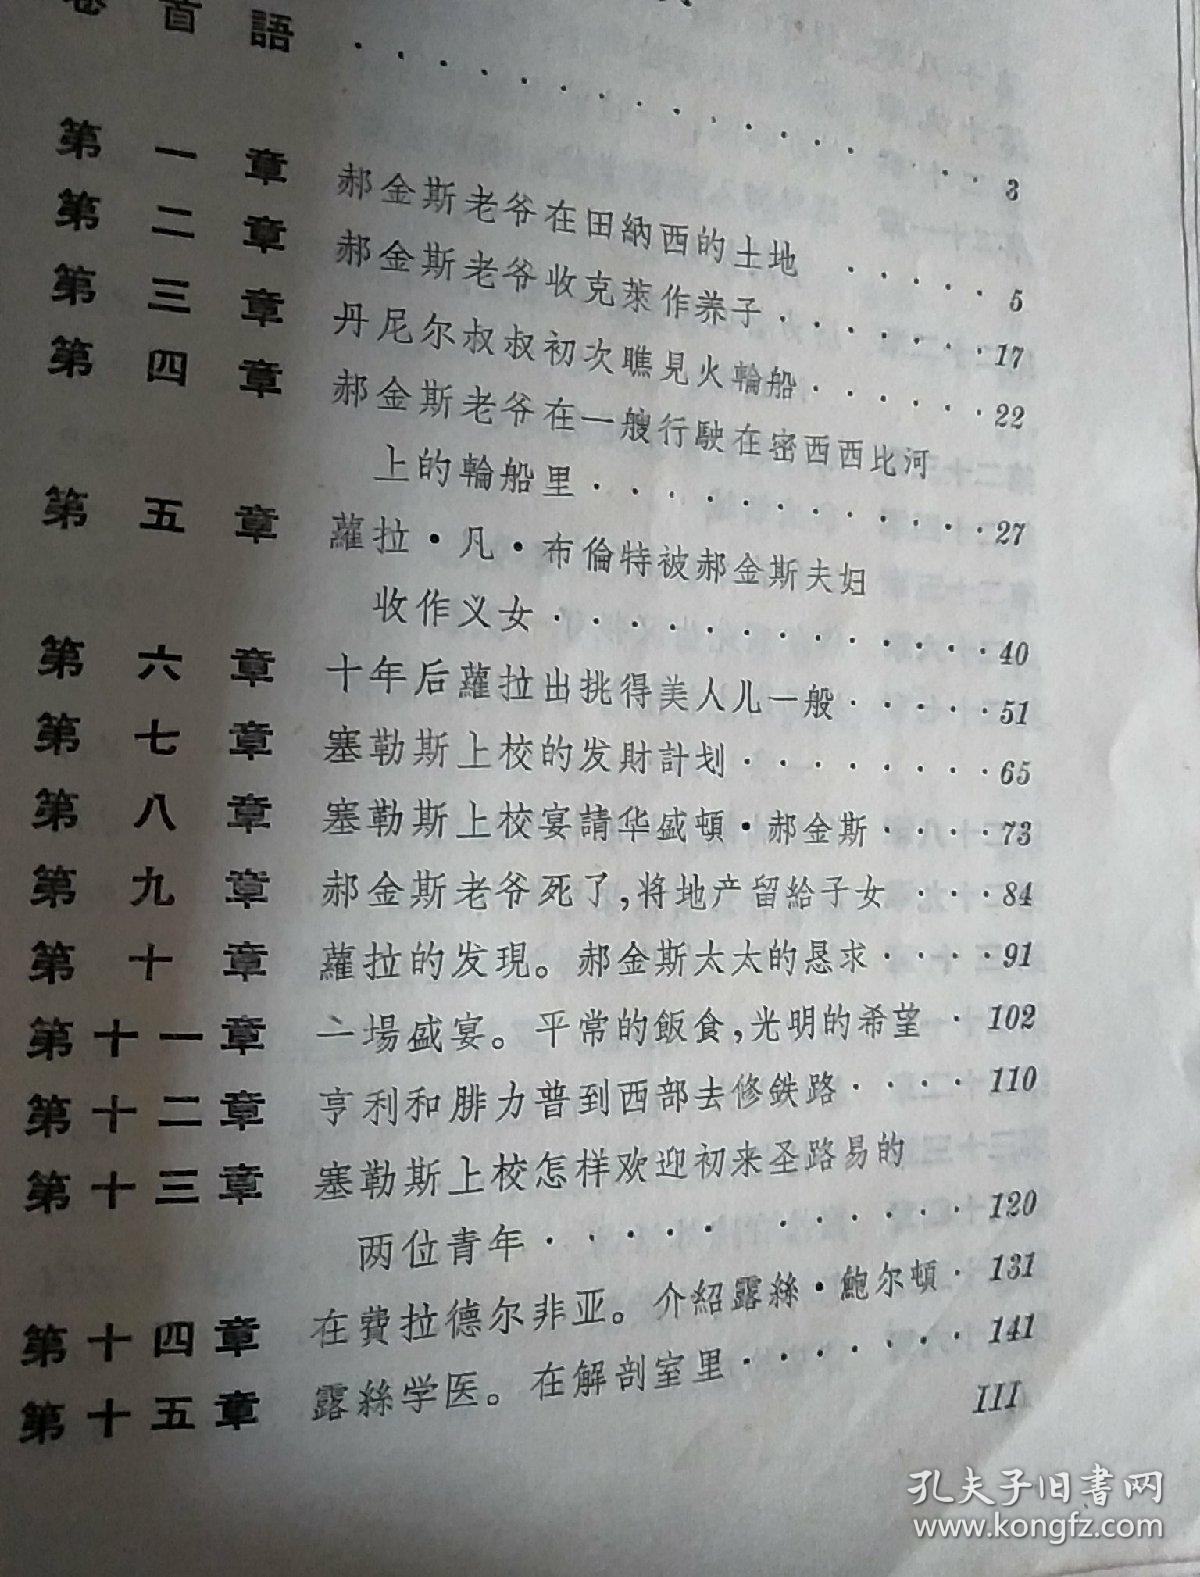 卷首語 · · · · · · · · · · · · · · · · 3
第一章 郝金斯老爷在田納西的土地 · · · · · 5
第二章 郝金斯老爷收克萊作养子 · · · · · · · 17
第三章 丹尼尔叔叔初次瞧見火輪船 · · · · · · 22
第四章 郝金斯老爷在一艘行駛在密西西比河
上的輪船里 · · · · · · · · · · · · 27
第五章 蘿拉·凡·布倫特被郝金斯夫妇
收作义女 · · · · · · · · · · · · 40
第六章 十年后蘿拉出挑得美人儿一般 · · · · · 51
第七章 塞勒斯上校的发財計划 · · · · · · · · 65
第八章 塞勒斯上校宴請华盛頓·郝金斯 · · · · 73
第九章 郝金斯老爷死了,将地产留給子女 · · · 84
第十章 蘿拉的发現。郝金斯太太的恳求 · · · · 91
第十一章 一場盛宴。平常的飯食,光明的希望 · 102
第十二章 亨利和腓力普到西部去修鉄路 · · · · 110
第十三章 塞勒斯上校怎样欢迎初来圣路易的
两位青年 · · · · · · · · · · · 120
第十四章 在費拉德尔非亚。介紹露絲·鮑尔頓 · 131
第十五章 露絲学医。在解剖室里 · · · · · · · 141
III
孔夫子旧书网
www.kongfz.com